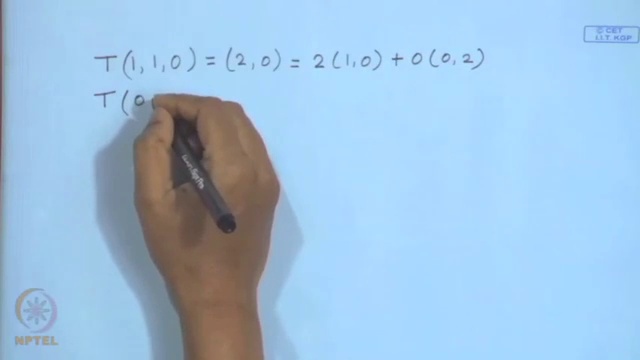 © CET
I.I.T. KGP
T(1,1,0) = (2,0) = 2(1,0) + 0(0,2)
T(0,
NPTEL